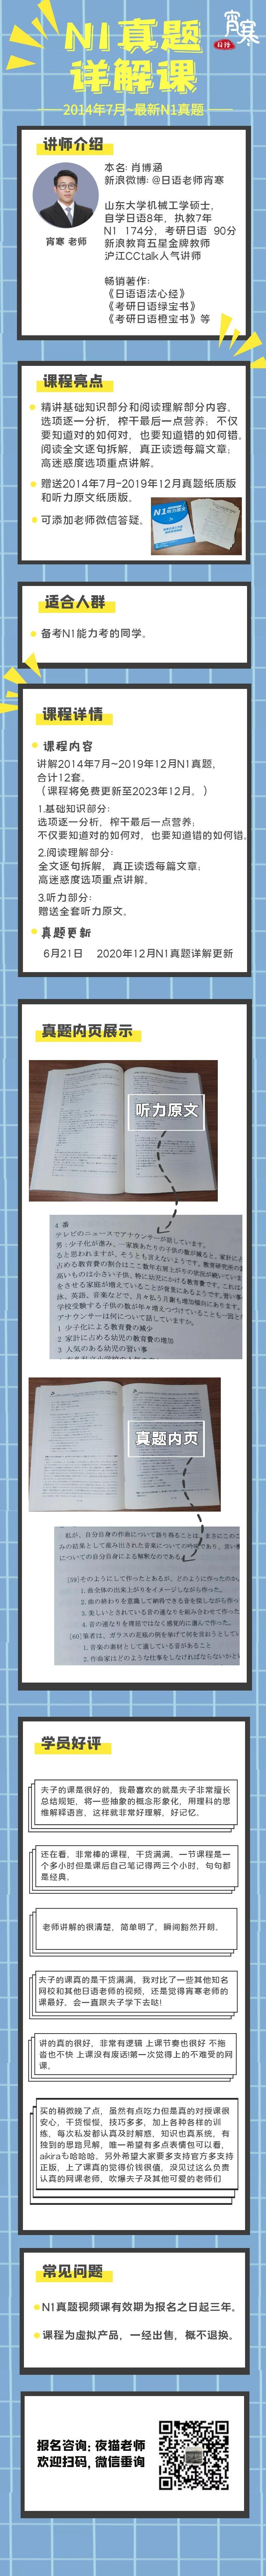 宵寒
日语
N1真题
详解课
2014年7月~最新N1真题
讲师介绍
宵寒 老师
本名: 肖博涵
新浪微博: @日语老师宵寒
山东大学机械工学硕士,
自学日语8年, 执教7年
N1 174分, 考研日语 90分
新浪教育五星金牌教师
沪江CCtalk人气讲师
畅销著作:
《日语语法心经》
《考研日语绿宝书》
《考研日语橙宝书》等
课程亮点
精讲基础知识部分和阅读理解部分内容。
选项逐一分析, 榨干最后一点营养; 不仅
要知道对的如何对, 也要知道错的如何错。
阅读全文逐句拆解, 真正读透每篇文章;
高迷惑度选项重点讲解。
赠送2014年7月~2019年12月真题纸质版
和听力原文纸质版。
可添加老师微信答疑。
适合人群
备考N1能力考的同学。
课程详情
课程内容
讲解2014年7月~2019年12月N1真题,
合计12套。
(课程将免费更新至2023年12月。)
1.基础知识部分:
选项逐一分析, 榨干最后一点营养;
不仅要知道对的如何对, 也要知道错的如何错。
2.阅读理解部分:
全文逐句拆解, 真正读透每篇文章;
高迷惑度选项重点讲解。
3.听力部分:
赠送全套听力原文。
真题更新
6月21日 2020年12月N1真题详解更新
真题内页展示
听力原文
4 番
テレビのニュースでアナウンサーが話しています。
1 少子化による教育費の減少
2 家計に占める幼児の教育費の増加
3 人気のある幼児の習い事
真题内页
1. 曲全体の出来上がりをイメージしながら作った。
2. 曲の終わりを意識して納得できる音を探しながら作った
3. 美しいとされている音の連なりを組み合わせて作った
4. 音の連なりを理屈ではなく感覚的に選んで作った。
1. 音楽の素材として適している音があること
学员好评
夫子的课是很好的, 我最喜欢的就是夫子非常擅长
总结规矩, 将一些抽象的概念形象化, 用理科的思
维解释语言, 这样就非常好理解, 好记忆。
还在看, 非常棒的课程, 干货满满, 一节课程是一
个多小时但是课后自己笔记得两三个小时, 句句都
是经典。
老师讲解的很清楚, 简单明了, 瞬间豁然开朗。
夫子的课真的是干货满满, 我对比了一些其他知名
网校和其他日语老师的视频, 还是觉得宵寒老师的
课最好。会一直跟夫子学下去哒!
讲的真的很好, 非常有逻辑 上课节奏也很好 不拖
沓也不快 上课没有废话!第一次觉得上的不难受的网
课。
买的稍微晚了点, 虽然有点吃力但是真的对授课很
安心, 干货慢慢, 技巧多多, 加上各种各样的训
练, 每次私发都认真及时解惑, 知识也真系统, 有
独到的思路見解, 唯一希望有多点表情包可以看,
aikiraも哈哈哈, 另外希望大家要多支持官方多支持
正版, 上了课真的觉得价钱很值, 没见过这么负责
认真的网课老师, 吹爆夫子及其他可爱的老师们
常见问题
N1真题视频课有效期为报名之日起三年。
课程为虚拟产品, 一经出售, 概不退换。
报名咨询: 夜猫老师
欢迎扫码, 微信垂询